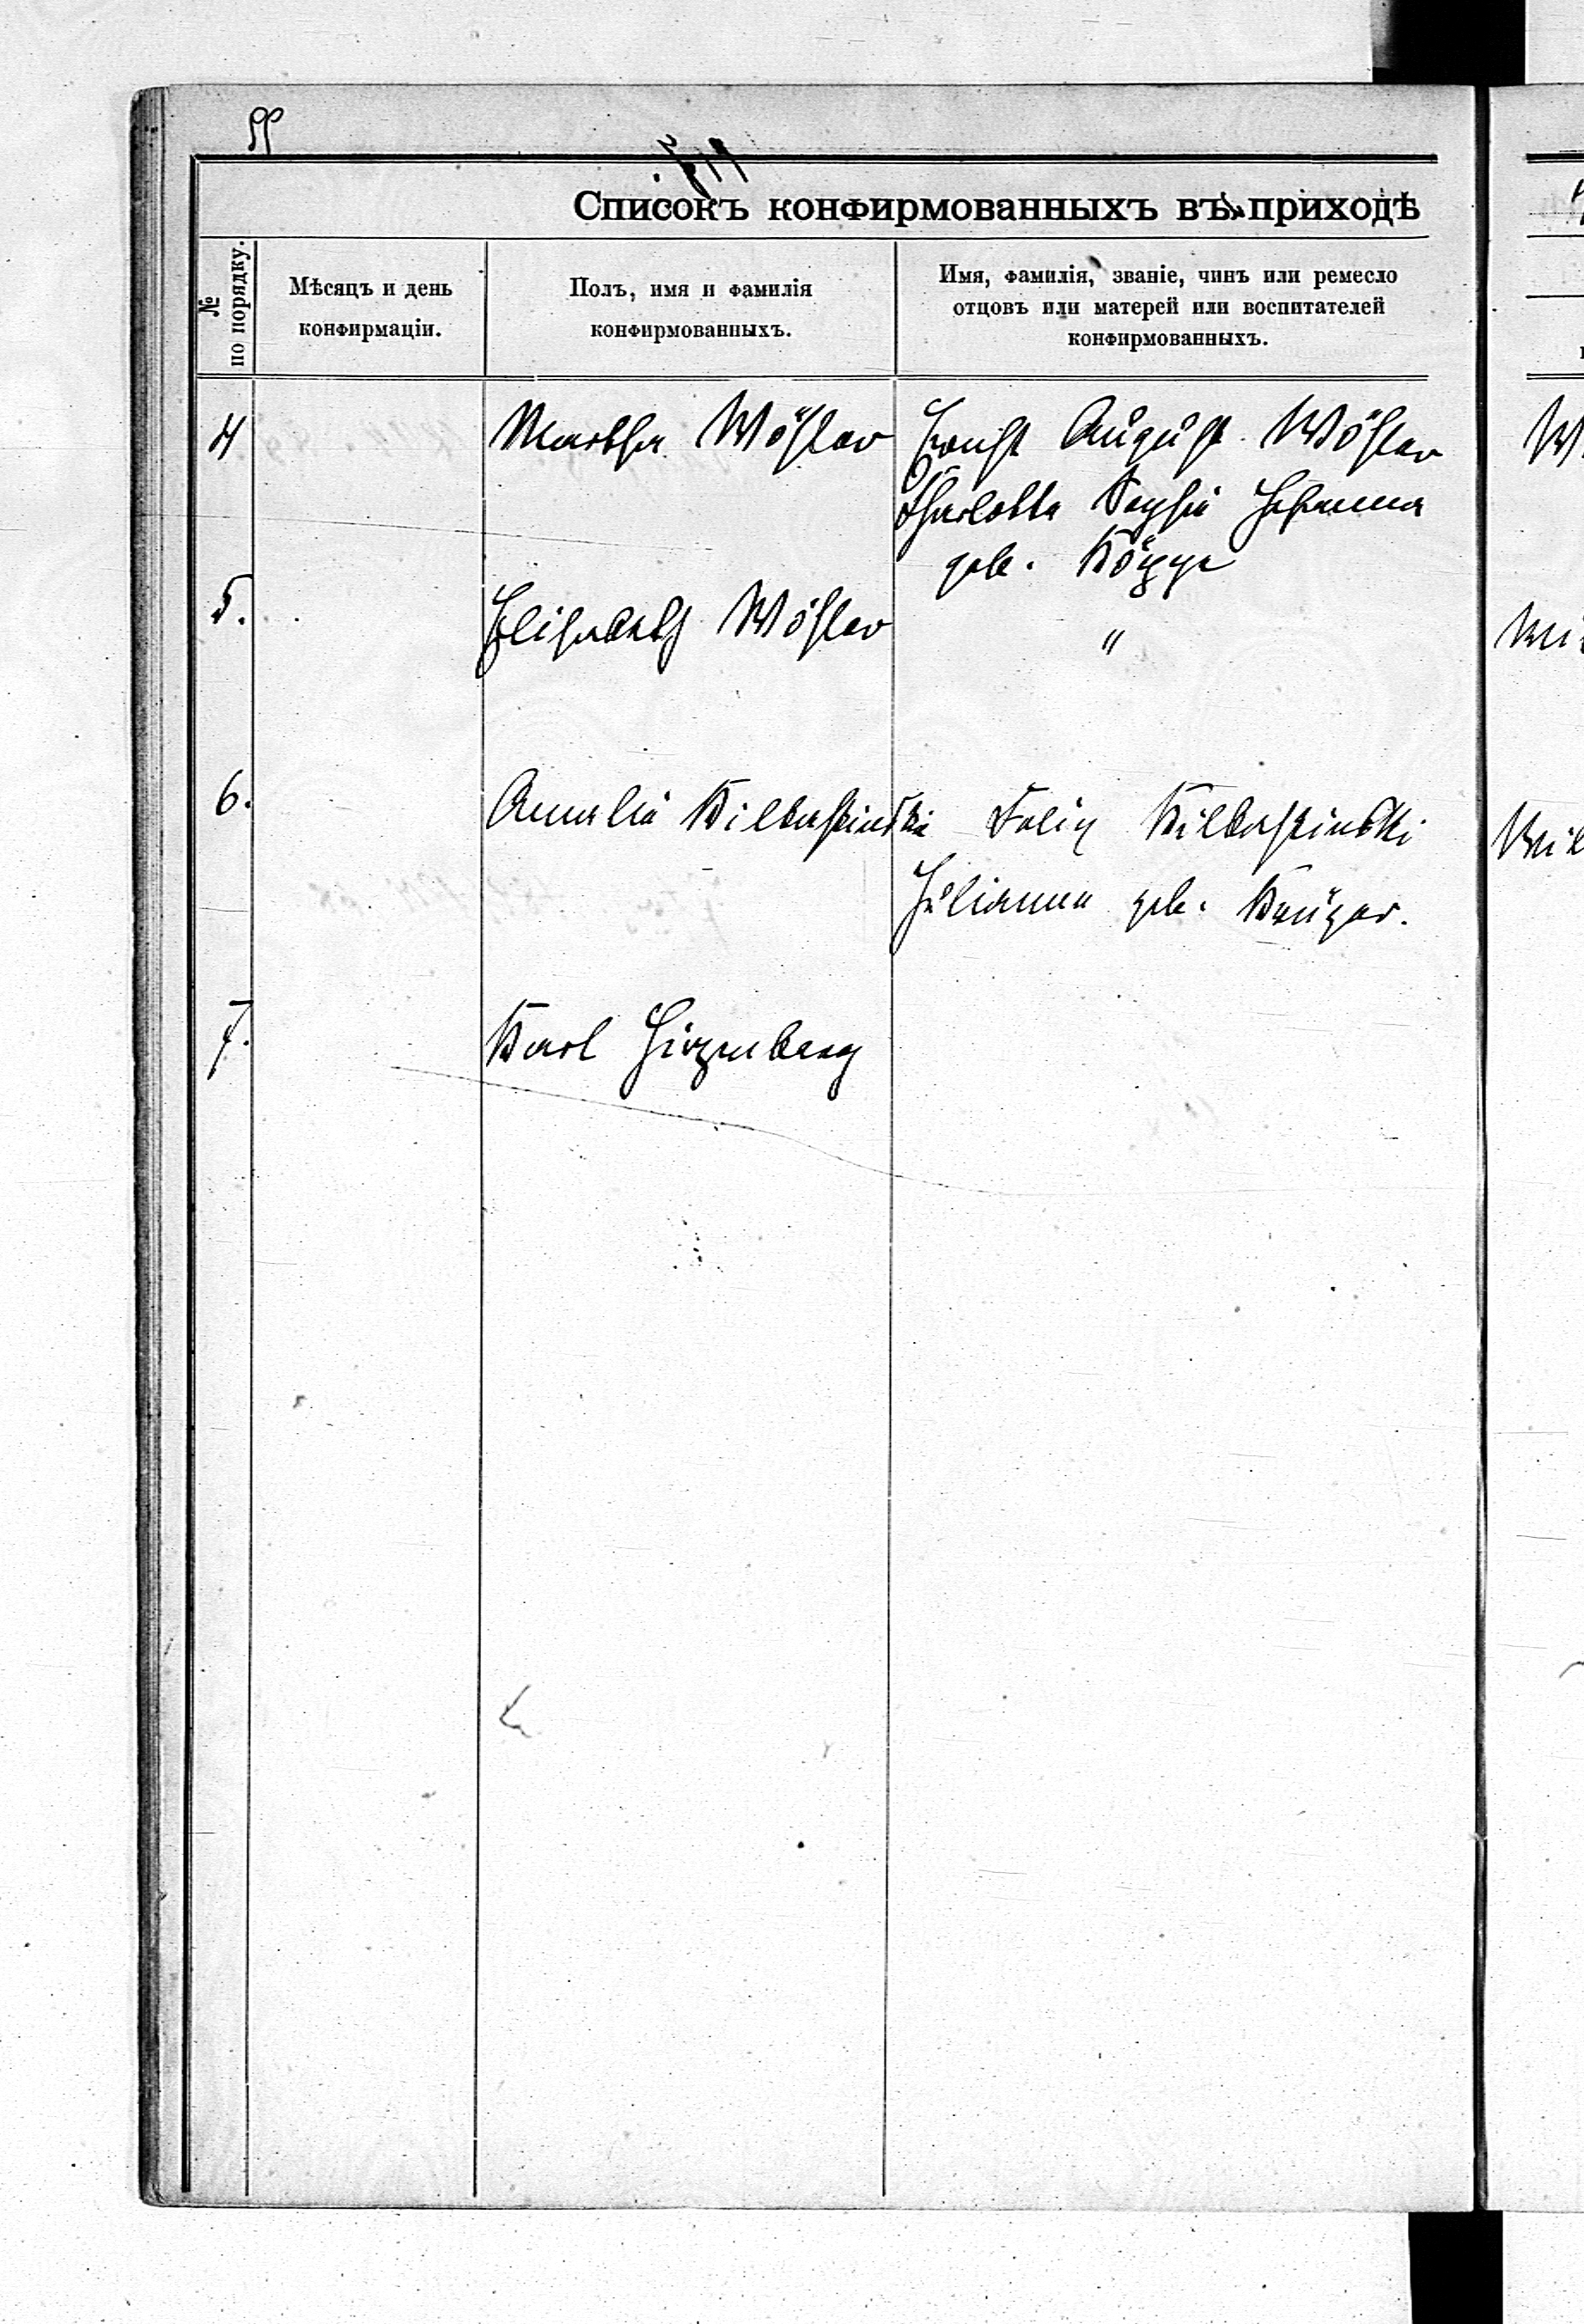 Списокъ конфирмованныхъ въ приходѣ
№ по порядку.
Мѣсяцъ и день
конфирмаціи.
Полъ, имя и фамилія
конфирмованныхъ.
Имя, фамилія, званіе, чинъ или ремесло
отцовъ или матерей или воспитателей
конфирмованныхъ.
4 Martha Wöhler Ernst August Wöhler
Charlotte Sophie Johanna
geb. Köppe
5. Elisabeth Wöhler "
6. Amalie Felix
Julianna geb. Krüger.
7. Karl